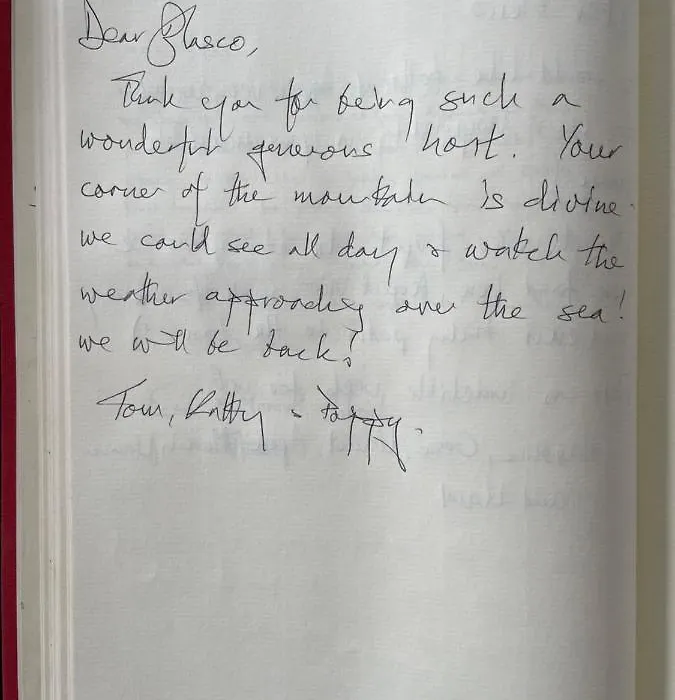 Dear Blasco,
Thank you for being such a
wonderful generous host. Your
corner of the mountain is divine.
we could see all day & watch the
weather approaching over the sea!
we will be back!
Tom, Kathy & Poppy.